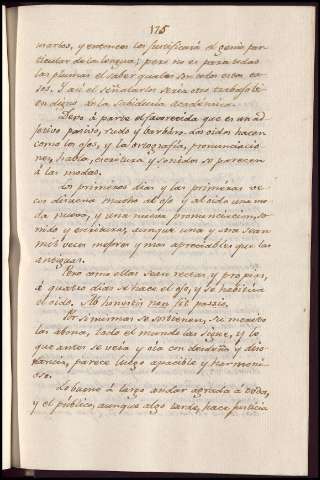 175
usarlos, y entonces los justificará el genio par-
ticular de la lengua; pero no es para todas
las plumas el saber quales son todos estos ca-
sos. Y asi el señalarlos seria otro trabajo bi-
en digno de la Sabiduria Academica.
Pero á parte
adjetivo pasivo, rudo y barbaro. Los oidos hacen
como los ojos, y la ortografía, pronunciacio-
nes, habla, escritura y sonidos se parecen
á las modas.
Los primeros dias y las primeras ve-
ces disuena mucho al ojo y al oido una mo-
da nueva, y una nueva pronunciacion, so-
nido y escritura, aunque una y otra sean
mil veces mejores y mas apreciables que las
antiguas.
Pero como ellas sean rectas y propias,
á quatro dias se hace el ojo, y se habitúa
el oido. Ab honestis non sit passio.
Por si mismas se sostienen, su merito
las abona, todo el mundo las sigue, y lo
que antes se veía y oía con desdeño y diso-
nancia, parece luego apacible y harmoni-
oso.
Lo bueno á largo andar agrada á todos,
y el público, aunque algo tarde, hace justicia